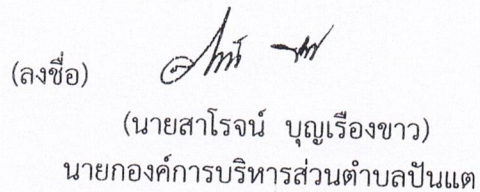 (ลงชื่อ)
(นายสาโรจน์ บุญเรืองขาว)
นายกองค์การบริหารส่วนตำบลปันแต